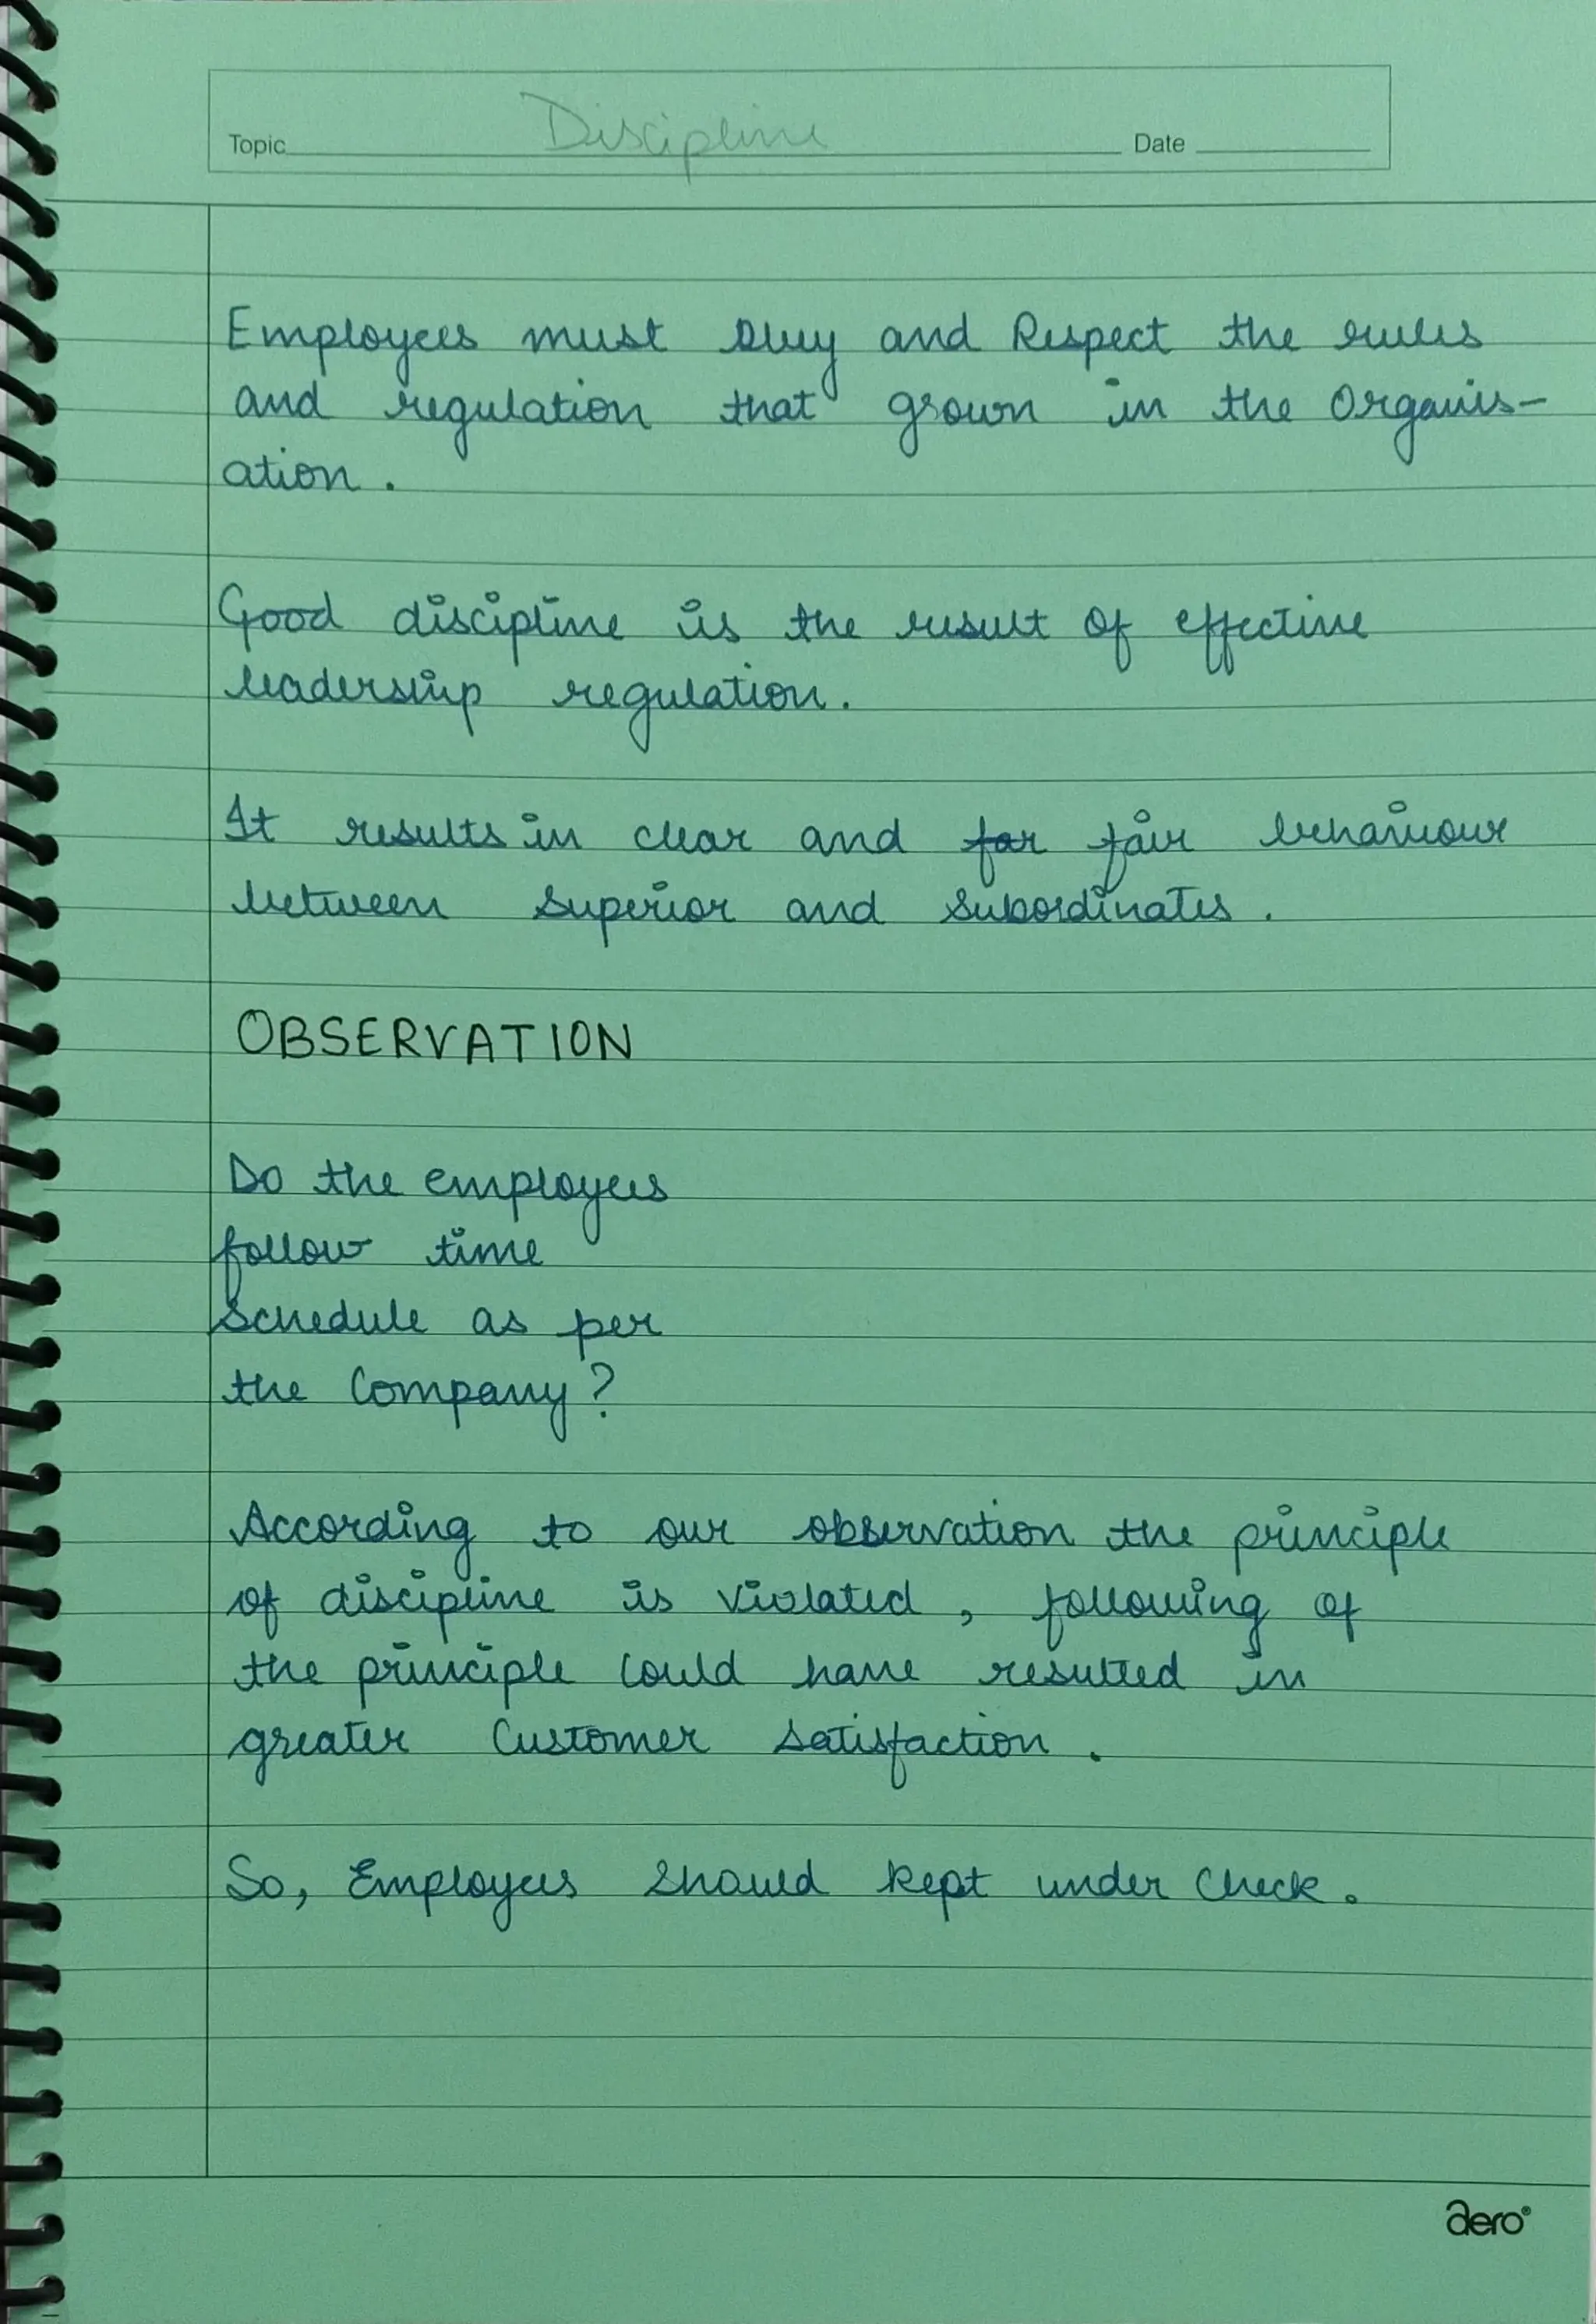 Topic Discipline Date
Employees must Obey and Respect the rules
and regulation that grown in the Organis-
ation.
Good discipline is the result of effective
leadership regulation.
It results in clear and far fair behaviour
between Superior and Subordinates.
OBSERVATION
Do the employees
follow time
Schedule as per
the Company?
According to our observation the principle
of discipline is violated, following of
the principle Could have resulted in
greater Customer Satisfaction.
So, Employees Should kept under Check.
aero®